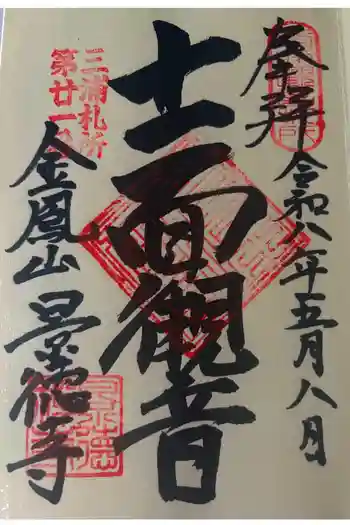 奉拝
令和八年五月八日
十一面観音
三浦札所
第廿一
金鳳山
景德寺